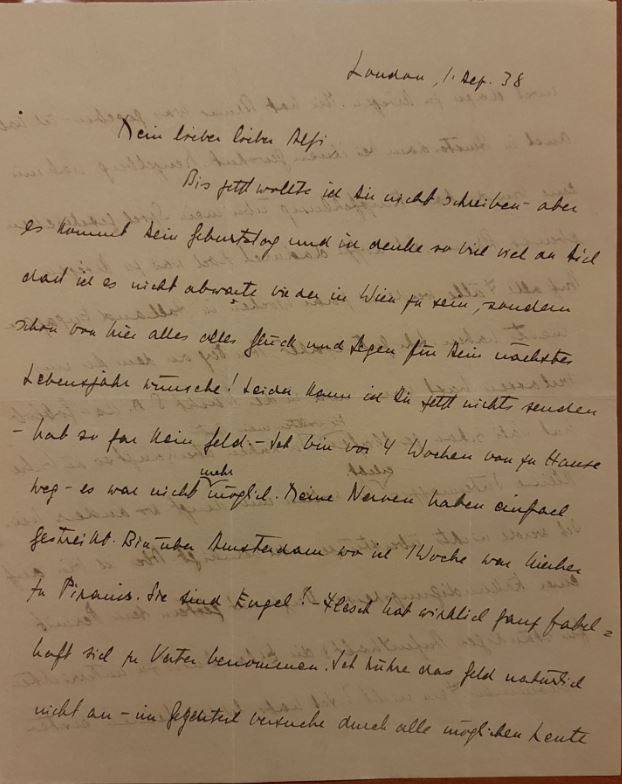 London, 1. Sep. 38
Mein lieber lieber Alfi
Bis jetzt wollte ich Dir nicht schreiben - aber
es kommt Dein Geburtstag und ich denke so viel viel an Dich
dass ich es nicht abwarte wieder in Wien zu sein, sondern
schon von hier alles alles Glück und Segen für Dein nächstes
Lebensjahr wünsche! Leider kann ich Dir jetzt nichts senden
- hab so gar kein Geld. - Ich bin vor 4 Wochen von zu Hause
weg - es war nicht mehr möglich. Meine Nerven haben einfach
gestreikt. Bin über Amsterdam wo ich 1 Woche war hierher
zu. Sie sind Engel! - hat wirklich ganz fabel=
haft sich zu Vater benommen. Ich rühre das Geld natürlich
nicht an - im Gegenteil versuche durch alle möglichen Leute